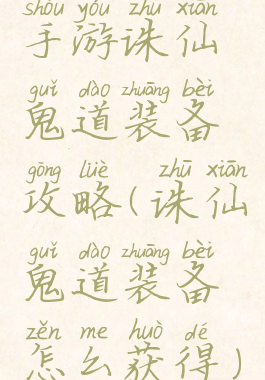 shǒu yóu zhū xiān
手游诛仙
guǐ dào zhuāng bèi
鬼道装备
gōng lüè zhū xiān
攻略(诛仙
guǐ dào zhuāng bèi
鬼道装备
zěn me huò dé
怎么获得)